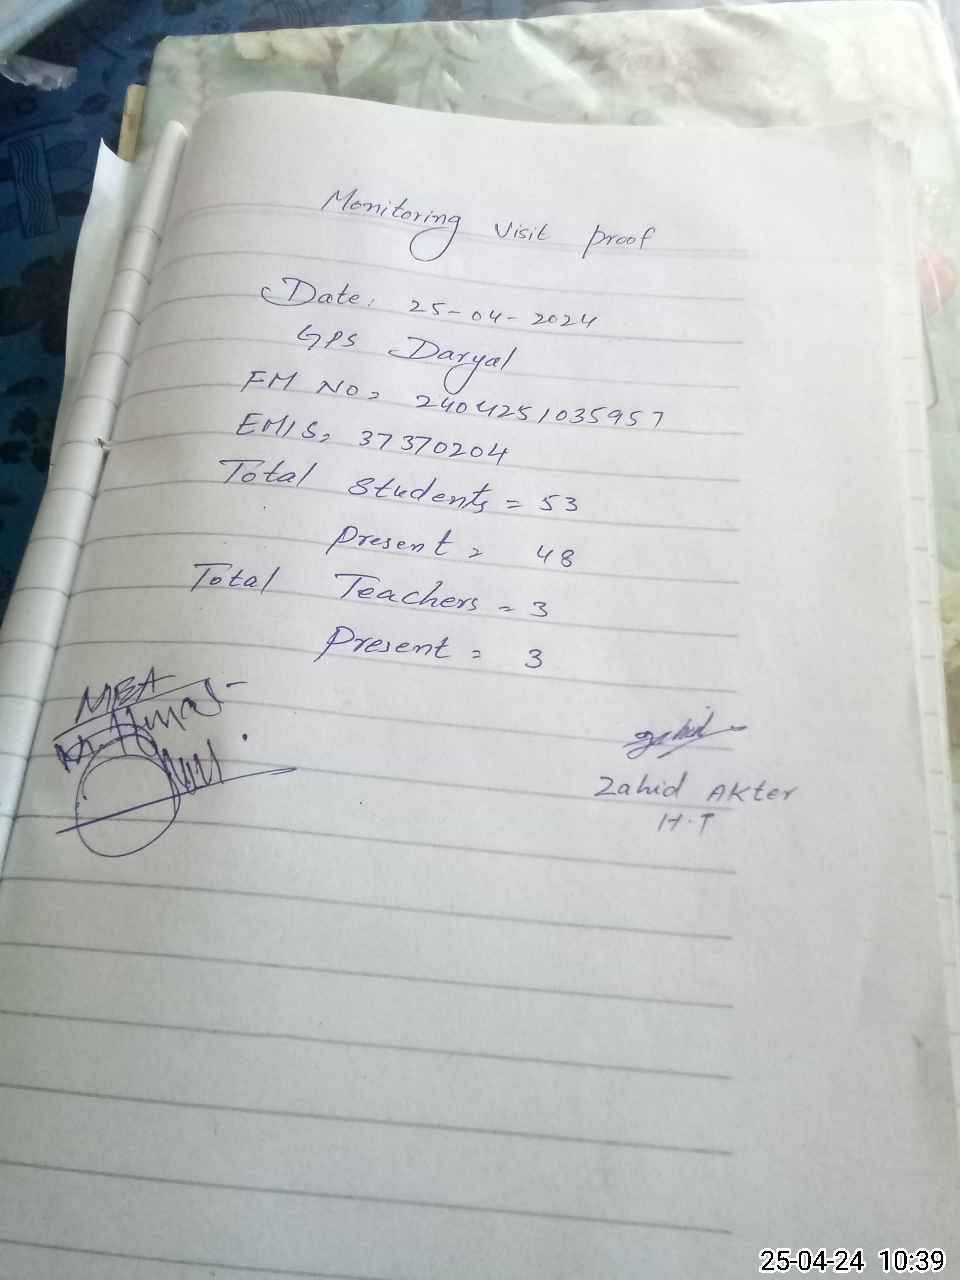 Monitoring Visit Proof
Date: 25-04-2024
GPS Daryal
FM No= 2404251035957
EMIS= 37370204
Total Students = 53
Present = 48
Total Teachers = 3
Present = 3
MEA
Zahid
Zahid AKter
H.T
25-04-24 10:39